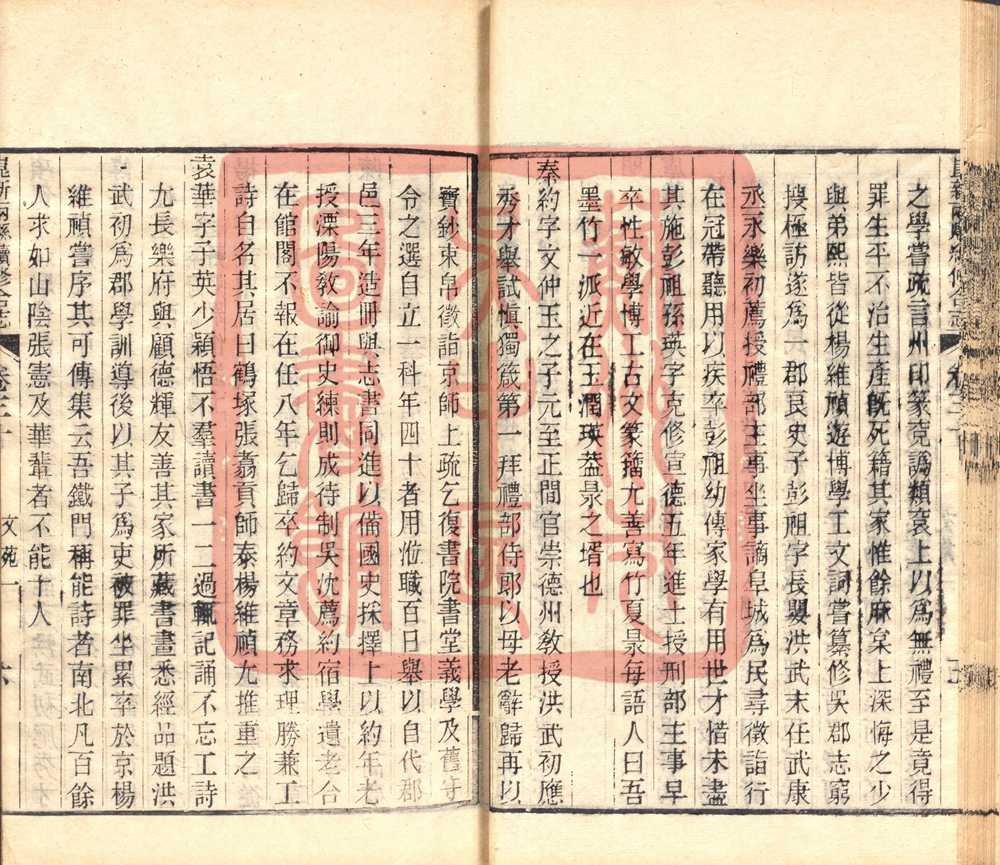 之學嘗疏言州印篆克譌類衮上以爲無禮至是竟得
罪生平不治生產旣死籍其家惟餘麻枲上深悔之少
與弟熙皆從楊維禎遊博學工文詞嘗纂修吳郡志窮
搜極訪遂爲一郡良史子彭祖字長嬰洪武末任武康
丞永樂初薦授禮部主事坐事謫阜城爲民尋徵詣行
在冠帶聽用以疾卒彭祖幼傳家學有用世才惜未盡
其施彭祖孫瑛字克修宣德五年進士授刑部主事早
卒性敏學博工古文篆籀尤善寫竹夏㫤每語人曰吾
墨竹一派近在玉潤瑛葢㫤之壻也
秦約字文仲玉之子元至正間官崇德州敎授洪武初應
秀才舉試愼獨箴第一拜禮部侍郎以母老辭歸再以
寶鈔束帛徵詣京師上疏乞復書院書堂義學及舊
令之選自立一科年四十者用涖職百日舉以自代郡
邑三年造冊與志書同進以備國史採擇上以約年老
授溧陽敎諭御史練則成待制吳沈薦約宿學遺老合
在館閣不報在任八年乞歸卒約文章務求理勝兼工
詩自名其居曰鶴塚張翥貢師泰楊維禎尤推重之
袁華字子英少穎悟不羣讀書一二過輒記誦不忘工詩
尤長樂府與顧德輝友善其家所藏書畫悉經品題洪
武初爲郡學訓導後以其子爲吏被罪坐累卒於京楊
維禎嘗序其可傳集云吾鐵門稱能詩者南北凡百餘
人求如山陰張憲及華輩者不能十人
崑新兩縣續修合志 卷三十 文苑一 六